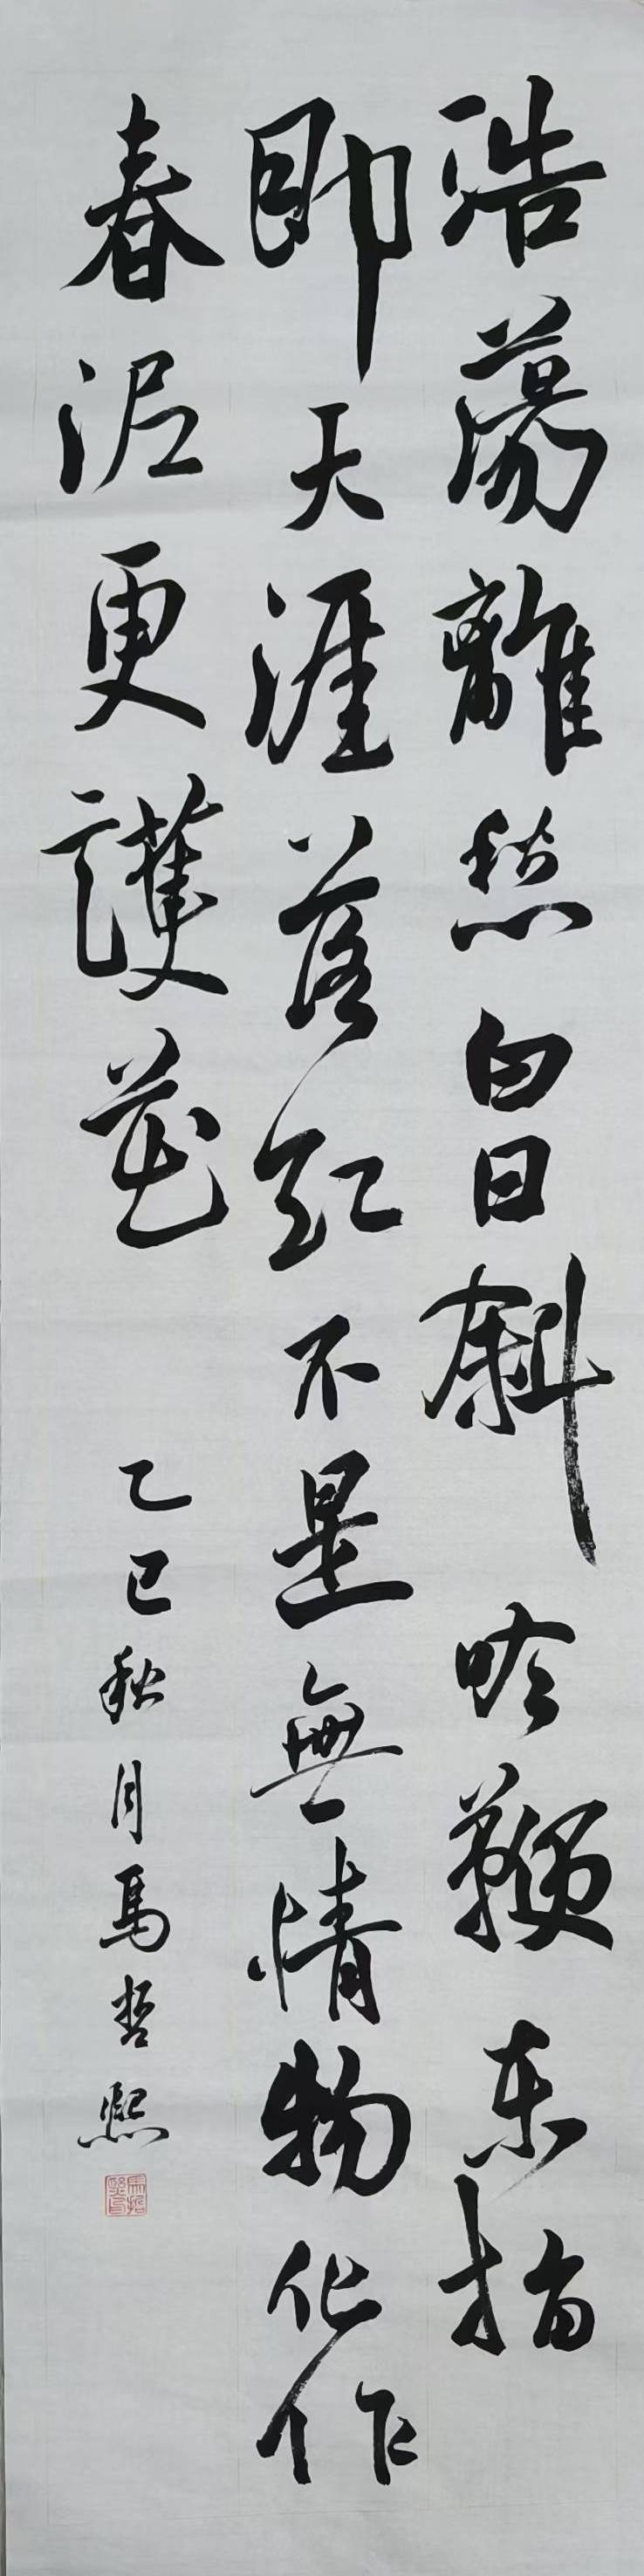 浩蕩離愁白日斜吟鞭东指
即天涯落红不是無情物化作
春泥更護花
乙巳秋月馬哲熙